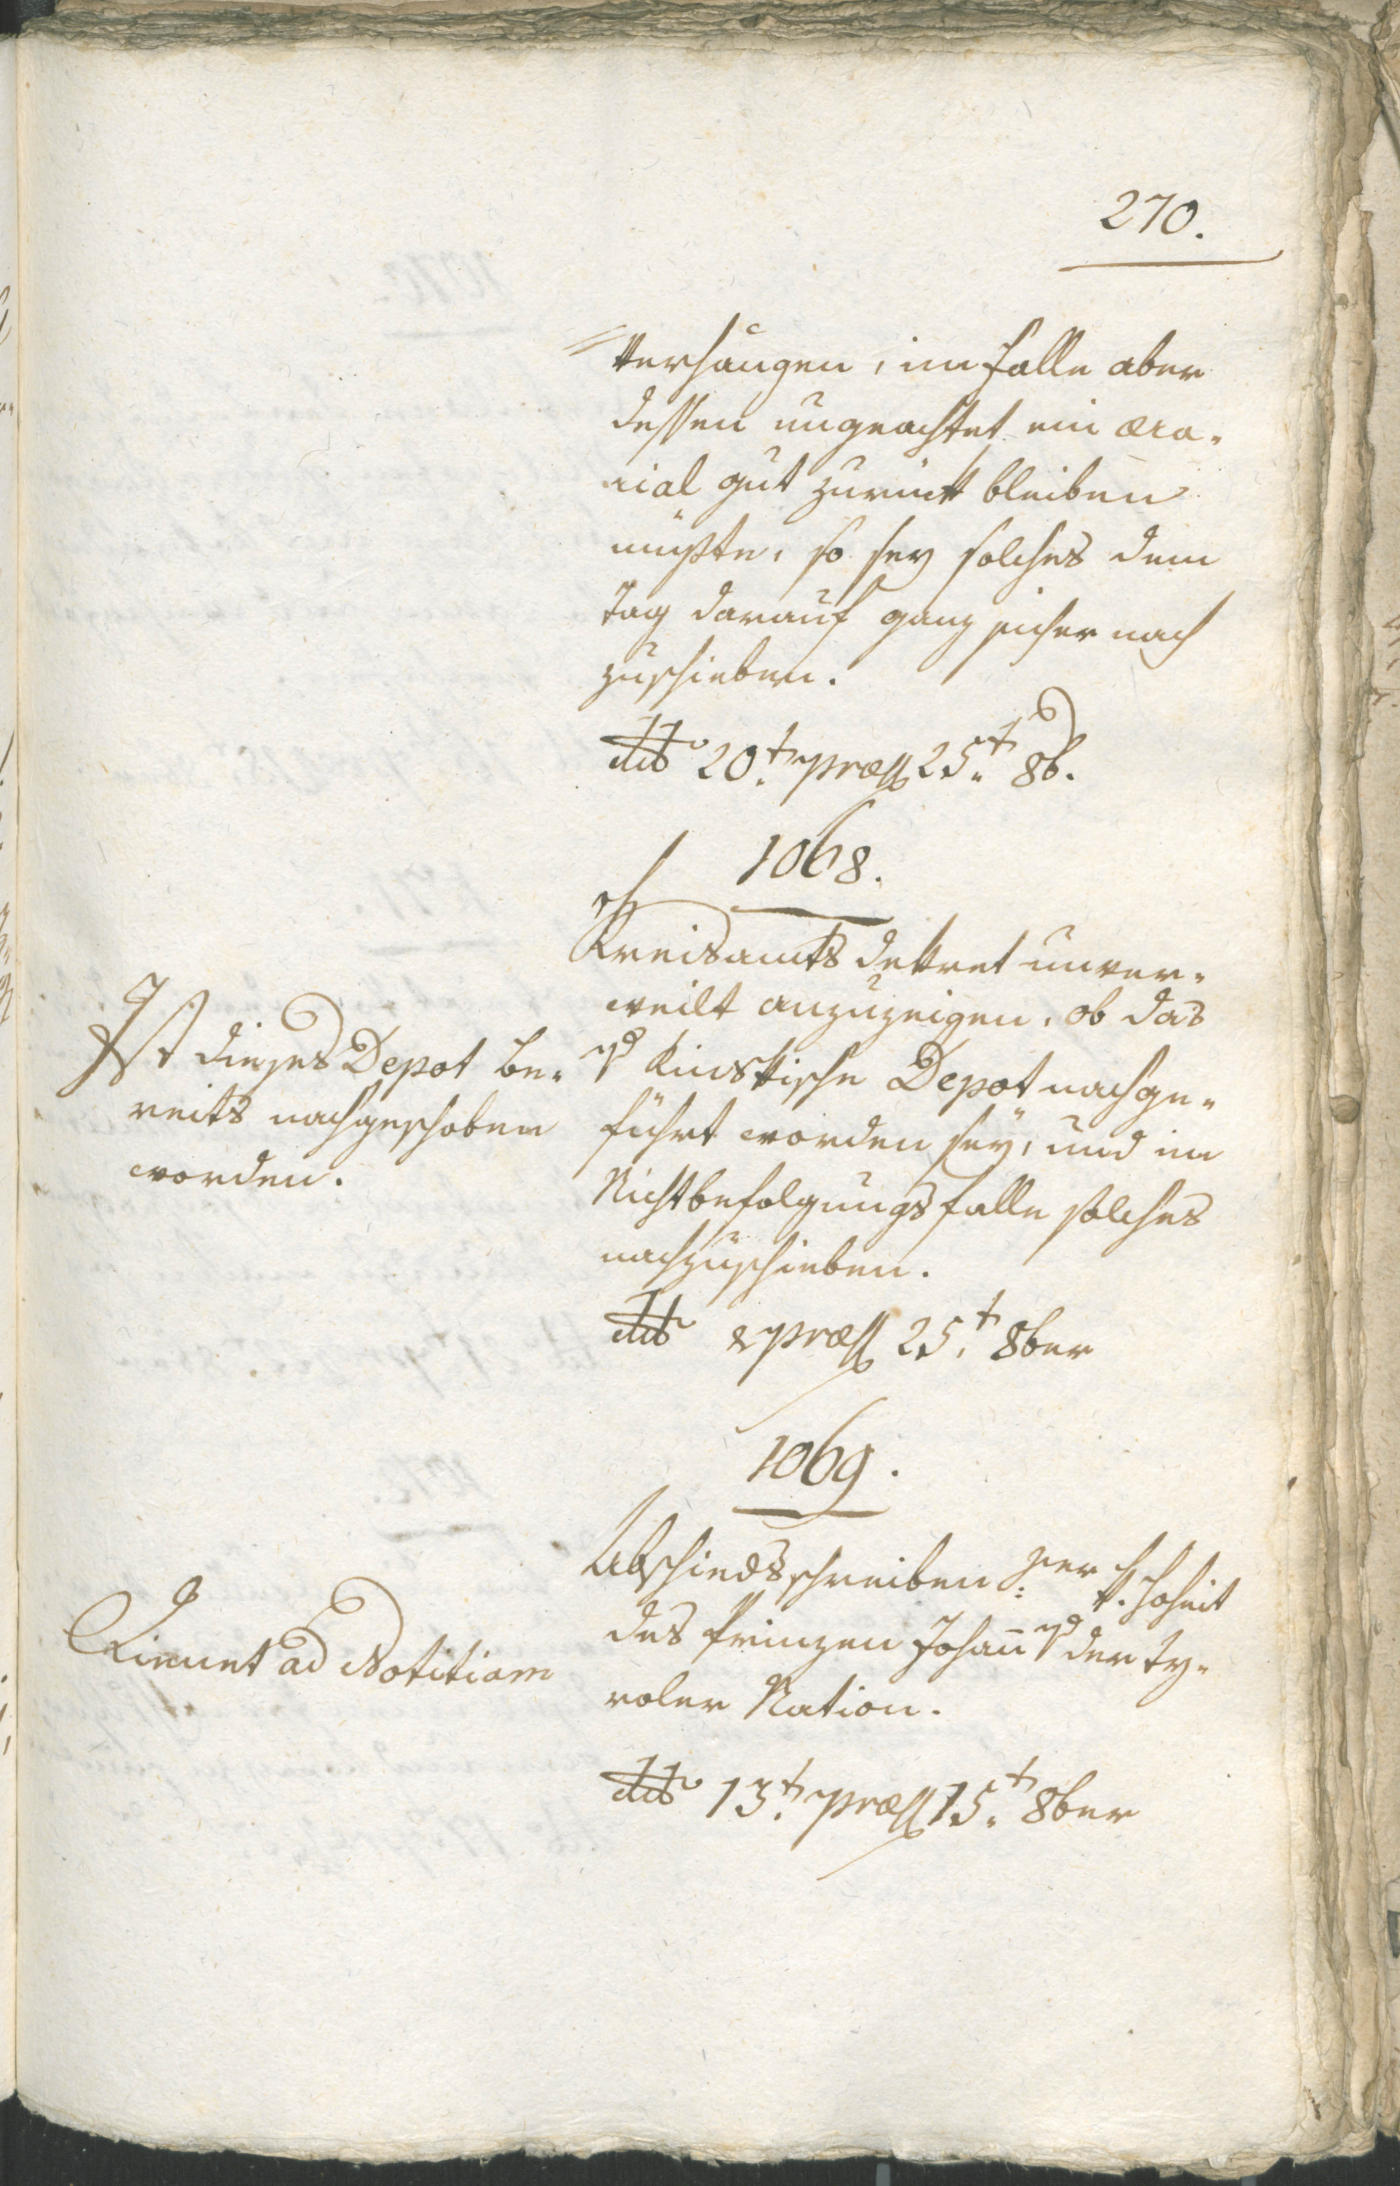 270.
verhängen, im Falle aber
dessen ungeachtet ein æra-
rial gut zurück bleiben
müßte, so sey solches dem
Tag darauf ganz sicher nach
zuschieben.
dto 20.t præs 25.t 8b.
1068.
Kreisamts dekret unver-
weilt anzuzeigen, ob das
Depot nachge-
führt worden sey, und im
Nichtbefolgungsfalle solches
nachzuschieben.
dto & præs 25.t 8ber
Ist dieses Depot be-
reits nachgeschoben
worden.
1069.
Abschiedsschreiben Sr k. Hoheit
des Prinzen Johann der Ty-
roler Nation.
dto 13.t præs 15.t 8ber
Dienet ad Notitiam